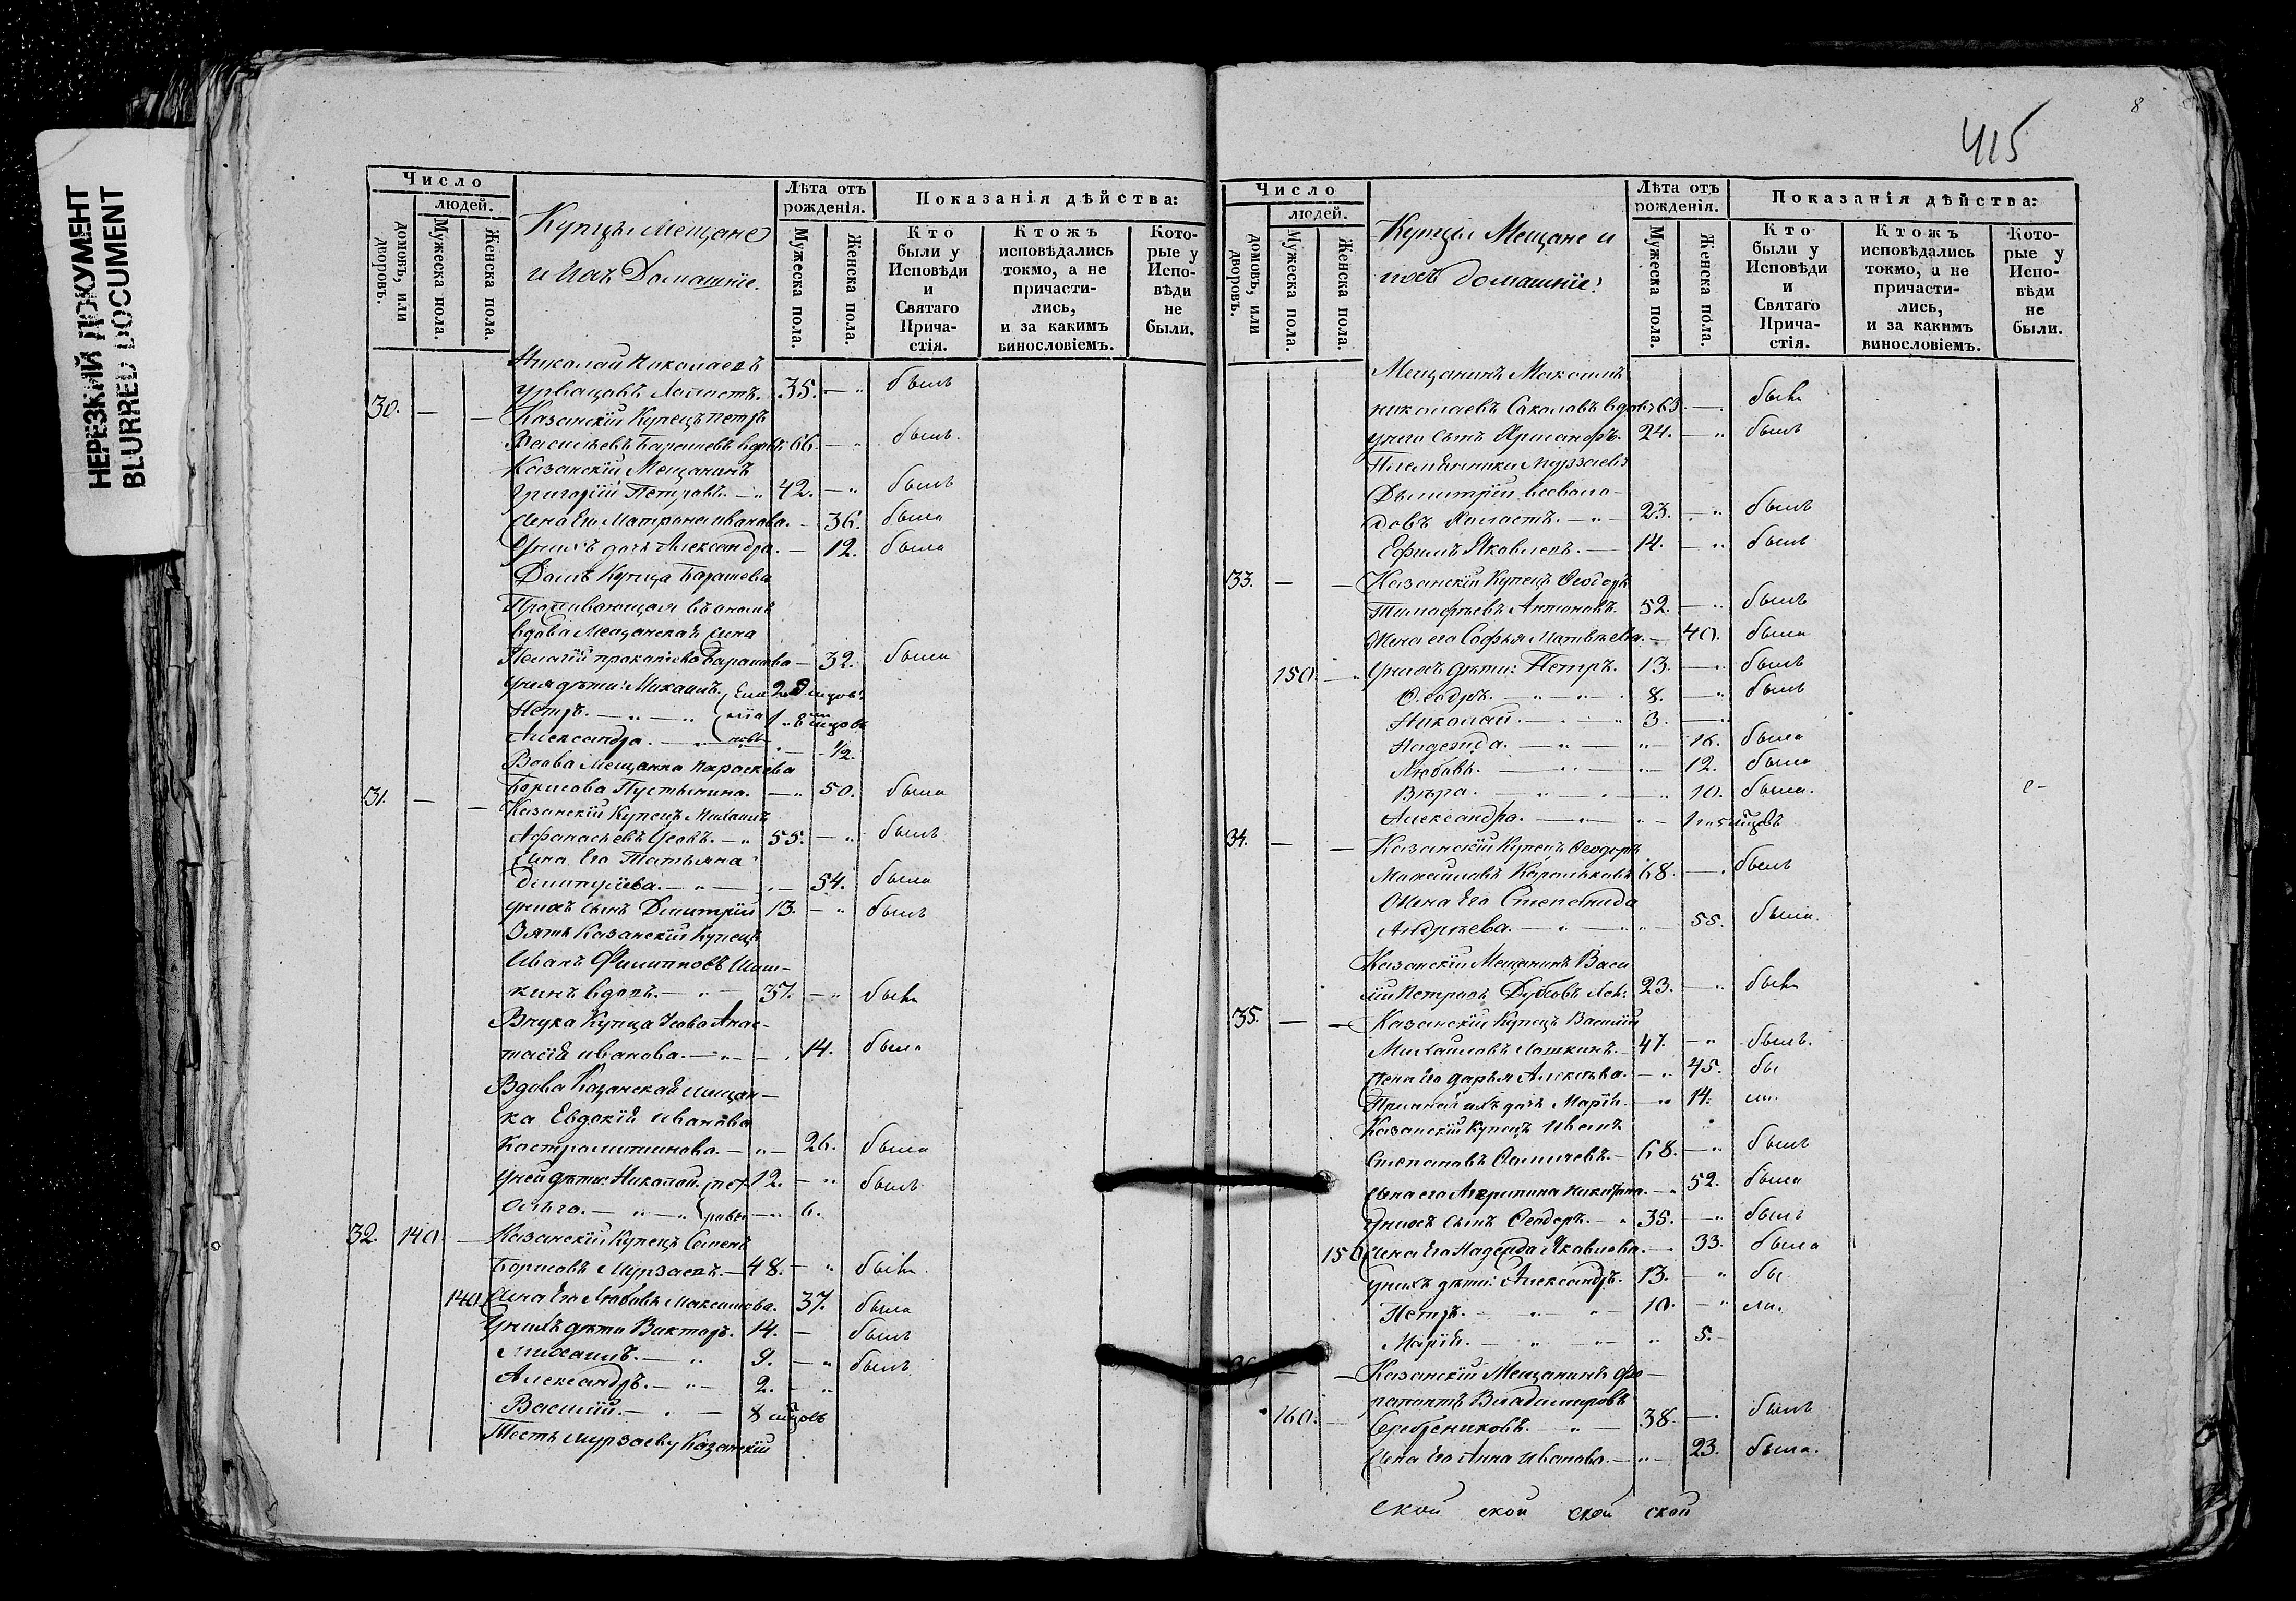 НЕРЕЗКИЙ ДОКУМЕНТ
BLURRED DOCUMENT
Число
людей.
домовъ, или дворовъ.
Мужеска пола.
Женска пола.
Купцы Мещане
и Ихъ Домашніе.
Лѣта отъ рожденія.
Мужеска пола.
Женска пола.
Показанія дѣйства:
Кто были у Исповѣди и Святаго Причастія.
Ктожъ исповѣдались токмо, а не причастились, и за какимъ винословіемъ.
Которые у Исповѣди не были.
Николай Николаевъ
Холостъ. 35. — былъ
30. — — Казанскій Купецъ Петръ
Васильевъ Барашевъ вдовъ 66. — былъ.
Казанскій Мещанинъ
Григорій Петровъ. — 42. — былъ
Жена Его Матрона Иванова. — 36. была
Унихъ дочь Александра. — 12. была
Домъ Купца Барашева
Проживающая въ ономъ
вдова Мещанская жена
Баранова — 32. была
Унея дѣти: Михаилъ.
Петръ. —
Александра. — 1/2.
Вдова Мещанка Параскева
Борисова Пустынина. — 50. была
31. — — Казанскій Купецъ Михаилъ
Афанасьевъ Усовъ. — 55. — былъ
Жена Его Татьяна
Димитріева. — 54. была
Унихъ сынъ Димитрій 13. — былъ
Зять Казанскій Купецъ
Иванъ Филипповъ Шаш-
кинъ вдовъ. — 37. — былъ
Внука Купца Усова Анас-
тасія Иванова. — 14. была
Вдова Казанская мещан-
ка Евдокія Иванова
— 26. была
Уней дѣти: Николай. 12. — былъ
Ольга. — 6.
32. 140. — Казанскій Купецъ Семенъ
Борисовъ Мурзаевъ. — 48. — былъ.
140. Жена Его Любовь Максимова. 37. была
Унихъ дѣти Викторъ. 14. — былъ
Михаилъ. — 9. — былъ
Александръ. — 2. —
Василій. — 8 мцовъ
Тесть Мурзаеву Казанскій
8
415
Число
людей.
домовъ, или дворовъ.
Мужеска пола.
Женска пола.
Купцы Мещане и
ихъ домашніе:
Лѣта отъ рожденія.
Мужеска пола.
Женска пола.
Показанія дѣйства:
Кто были у Исповѣди и Святаго Причастія.
Ктожъ исповѣдались токмо, а не причастились, и за какимъ винословіемъ.
Которые у Исповѣди не были.
Мещанинъ Максимъ
Николаевъ Соколовъ вдовъ 63. — былъ
Унего сынъ 24. — былъ
Племянники Мурзаева
Димитрій Всеволо-
довъ Холостъ. — 23. — былъ
Ефимъ Яковлевъ. — 14. — былъ
33. — — Казанскій Купецъ Ѳеодоръ
Тимофѣевъ Антоновъ. 52. — былъ
Жена его Софья Матвѣева. — 40. была
150. — Унихъ дѣти: Петръ. 13. — былъ
Ѳеодръ. — 8. — былъ
Николай. — 3. —
Надежда. — 16. была
Любовь. — 12. была
Вѣра. — 10. была.
Александра. — 1 5 мцовъ
34. — — Казанскій Купецъ Ѳеодоръ
Корольковъ 68. — былъ
Жена Его Степанида
Андреева. — 55. была.
Казанскій Мещанинъ Васи
лій Петровъ 23. — былъ
35. — — Казанскій Купецъ Василій
Михайловъ 47. — былъ.
Жена Его Дарья Алексѣева. — 45. бы
дочь Марія. — 14. ли.
Казанскій Купецъ Иванъ
Степановъ 68. — былъ
Жена его Агрипина — 52. была
Унихъ сынъ Ѳеодоръ. — 35. — былъ
150 Жена Его Надежда Яковлева. — 33. была
Унихъ дѣти: Александръ. 13. — бы
Петръ. 10. — ли.
Марія. — 5. —
36. — — Казанскій Мещанинъ
Владимировъ
160. — Серебрениковъ. — 38. — былъ
Жена Его Анна Иванова. — 23. была.
ской ской ской ской